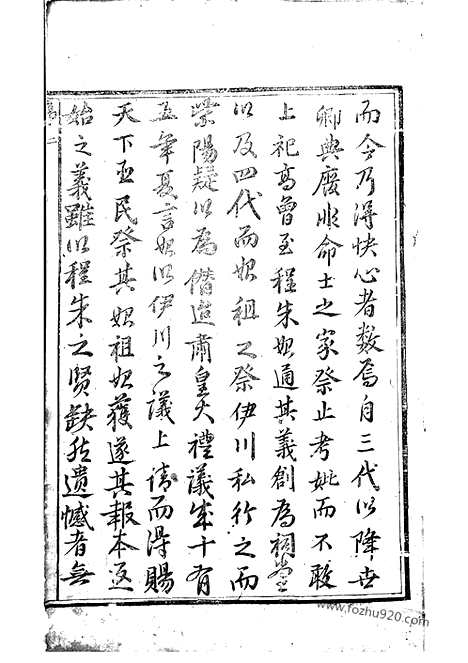 而今乃得快心者数焉自三代以降世
卿典廢非命士之家祭止考妣而不敢
上祀高曾至程朱始通其義創為祠堂
以及四代而始祖之祭伊川私行之而
紫陽疑以為僭迨肅皇大禮議成十有
五年夏言始以伊川之議上請而得賜
天下臣民祭其始祖始獲遂其報本返
始之義雖以程朱之賢缺然遺憾者無
www.fozhu920.com